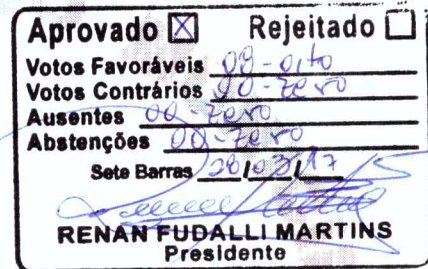 Aprovado ☒ Rejeitado ☐
Votos Favoráveis 08-oito
Votos Contrários 00-zero
Ausentes 00-zero
Abstenções 00-zero
Sete Barras 28/03/17
RENAN FUDALLI MARTINS
Presidente